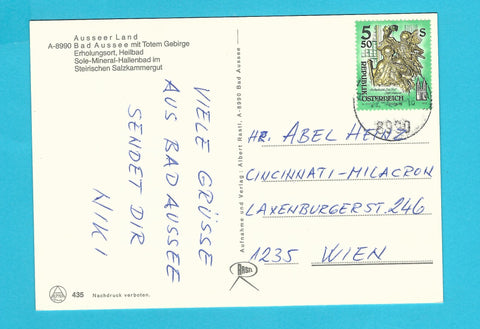 Ausseer Land
A-8990 Bad Aussee mit Totem Gebirge
Erholungsort, Heilbad
Sole-Mineral-Hallenbad im
Steirischen Salzkammergut
VIELE GRÜSSE
AUS BAD AUSSEE
SENDET DIR
NIKI
435 Nachdruck verboten.
Aufnahme und Verlag: Albert Rastl, A-8990 Bad Aussee
RASTL
5 50 S
REPUBLIK
ÖSTERREICH
8990
HR. ABEL HEINZ
CINCINNATI-MILACRON
LAXENBURGERST. 246
1235 WIEN